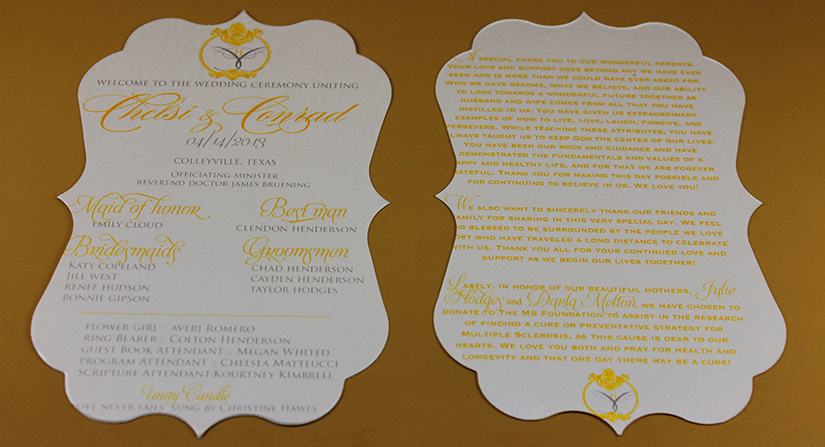 WELCOME TO THE WEDDING CEREMONY UNITING
Chelsi & Conrad
04/14/2013
COLLEYVILLE, TEXAS
OFFICIATING MINISTER
REVEREND DOCTOR JAMES BRUENING
Maid of honor
EMILY CLOUD
Best man
CLENDON HENDERSON
Bridesmaids
KATY COPELAND
JILL WEST
RENEE HUDSON
BONNIE GIPSON
Groomsmen
CHAD HENDERSON
CAYDEN HENDERSON
TAYLOR HODGES
FLOWER GIRL :: AVERI ROMERO
RING BEARER :: COLTON HENDERSON
GUEST BOOK ATTENDANT :: MEGAN WHITED
PROGRAM ATTENDANT :: CHELSEA MATTEUCCI
SCRIPTURE ATTENDANT: KOURTNEY KIMBRELL
Unity Candle
"LOVE NEVER FAILS" SUNG BY CHRISTINE HAWES
A SPECIAL THANK YOU TO OUR WONDERFUL PARENTS.
YOUR LOVE AND SUPPORT GOES BEYOND ANY WE HAVE EVER
SEEN AND IS MORE THAN WE COULD HAVE EVER ASKED FOR.
WHO WE HAVE BECOME, WHAT WE BELIEVE, AND OUR ABILITY
TO LOOK TOWARDS A WONDERFUL FUTURE TOGETHER AS
HUSBAND AND WIFE COMES FROM ALL THAT YOU HAVE
INSTILLED IN US. YOU HAVE GIVEN US EXTRAORDINARY
EXAMPLES OF HOW TO LIVE, LOVE, LAUGH, FORGIVE, AND
PERSEVERE. WHILE TEACHING THESE ATTRIBUTES, YOU HAVE
ALWAYS TAUGHT US TO KEEP GOD THE CENTER OF OUR LIVES.
YOU HAVE BEEN OUR ROCK AND GUIDANCE AND HAVE
DEMONSTRATED THE FUNDAMENTALS AND VALUES OF A
HAPPY AND HEALTHY LIFE, AND FOR THAT WE ARE FOREVER
GRATEFUL. THANK YOU FOR MAKING THIS DAY POSSIBLE AND
FOR CONTINUING TO BELIEVE IN US. WE LOVE YOU!
WE ALSO WANT TO SINCERELY THANK OUR FRIENDS AND
FAMILY FOR SHARING IN THIS VERY SPECIAL DAY. WE FEEL
SO BLESSED TO BE SURROUNDED BY THE PEOPLE WE LOVE
MOST WHO HAVE TRAVELED A LONG DISTANCE TO CELEBRATE
WITH US. THANK YOU ALL FOR YOUR CONTINUED LOVE AND
SUPPORT AS WE BEGIN OUR LIVES TOGETHER!
LASTLY, IN HONOR OF OUR BEAUTIFUL MOTHERS, Julie
Hodges AND Darla Melton, WE HAVE CHOSEN TO
DONATE TO THE MS FOUNDATION TO ASSIST IN THE RESEARCH
OF FINDING A CURE OR PREVENTATIVE STRATEGY FOR
MULTIPLE SCLEROSIS, AS THIS CAUSE IS DEAR TO OUR
HEARTS. WE LOVE YOU BOTH AND PRAY FOR HEALTH AND
LONGEVITY AND THAT ONE DAY THERE MAY BE A CURE!